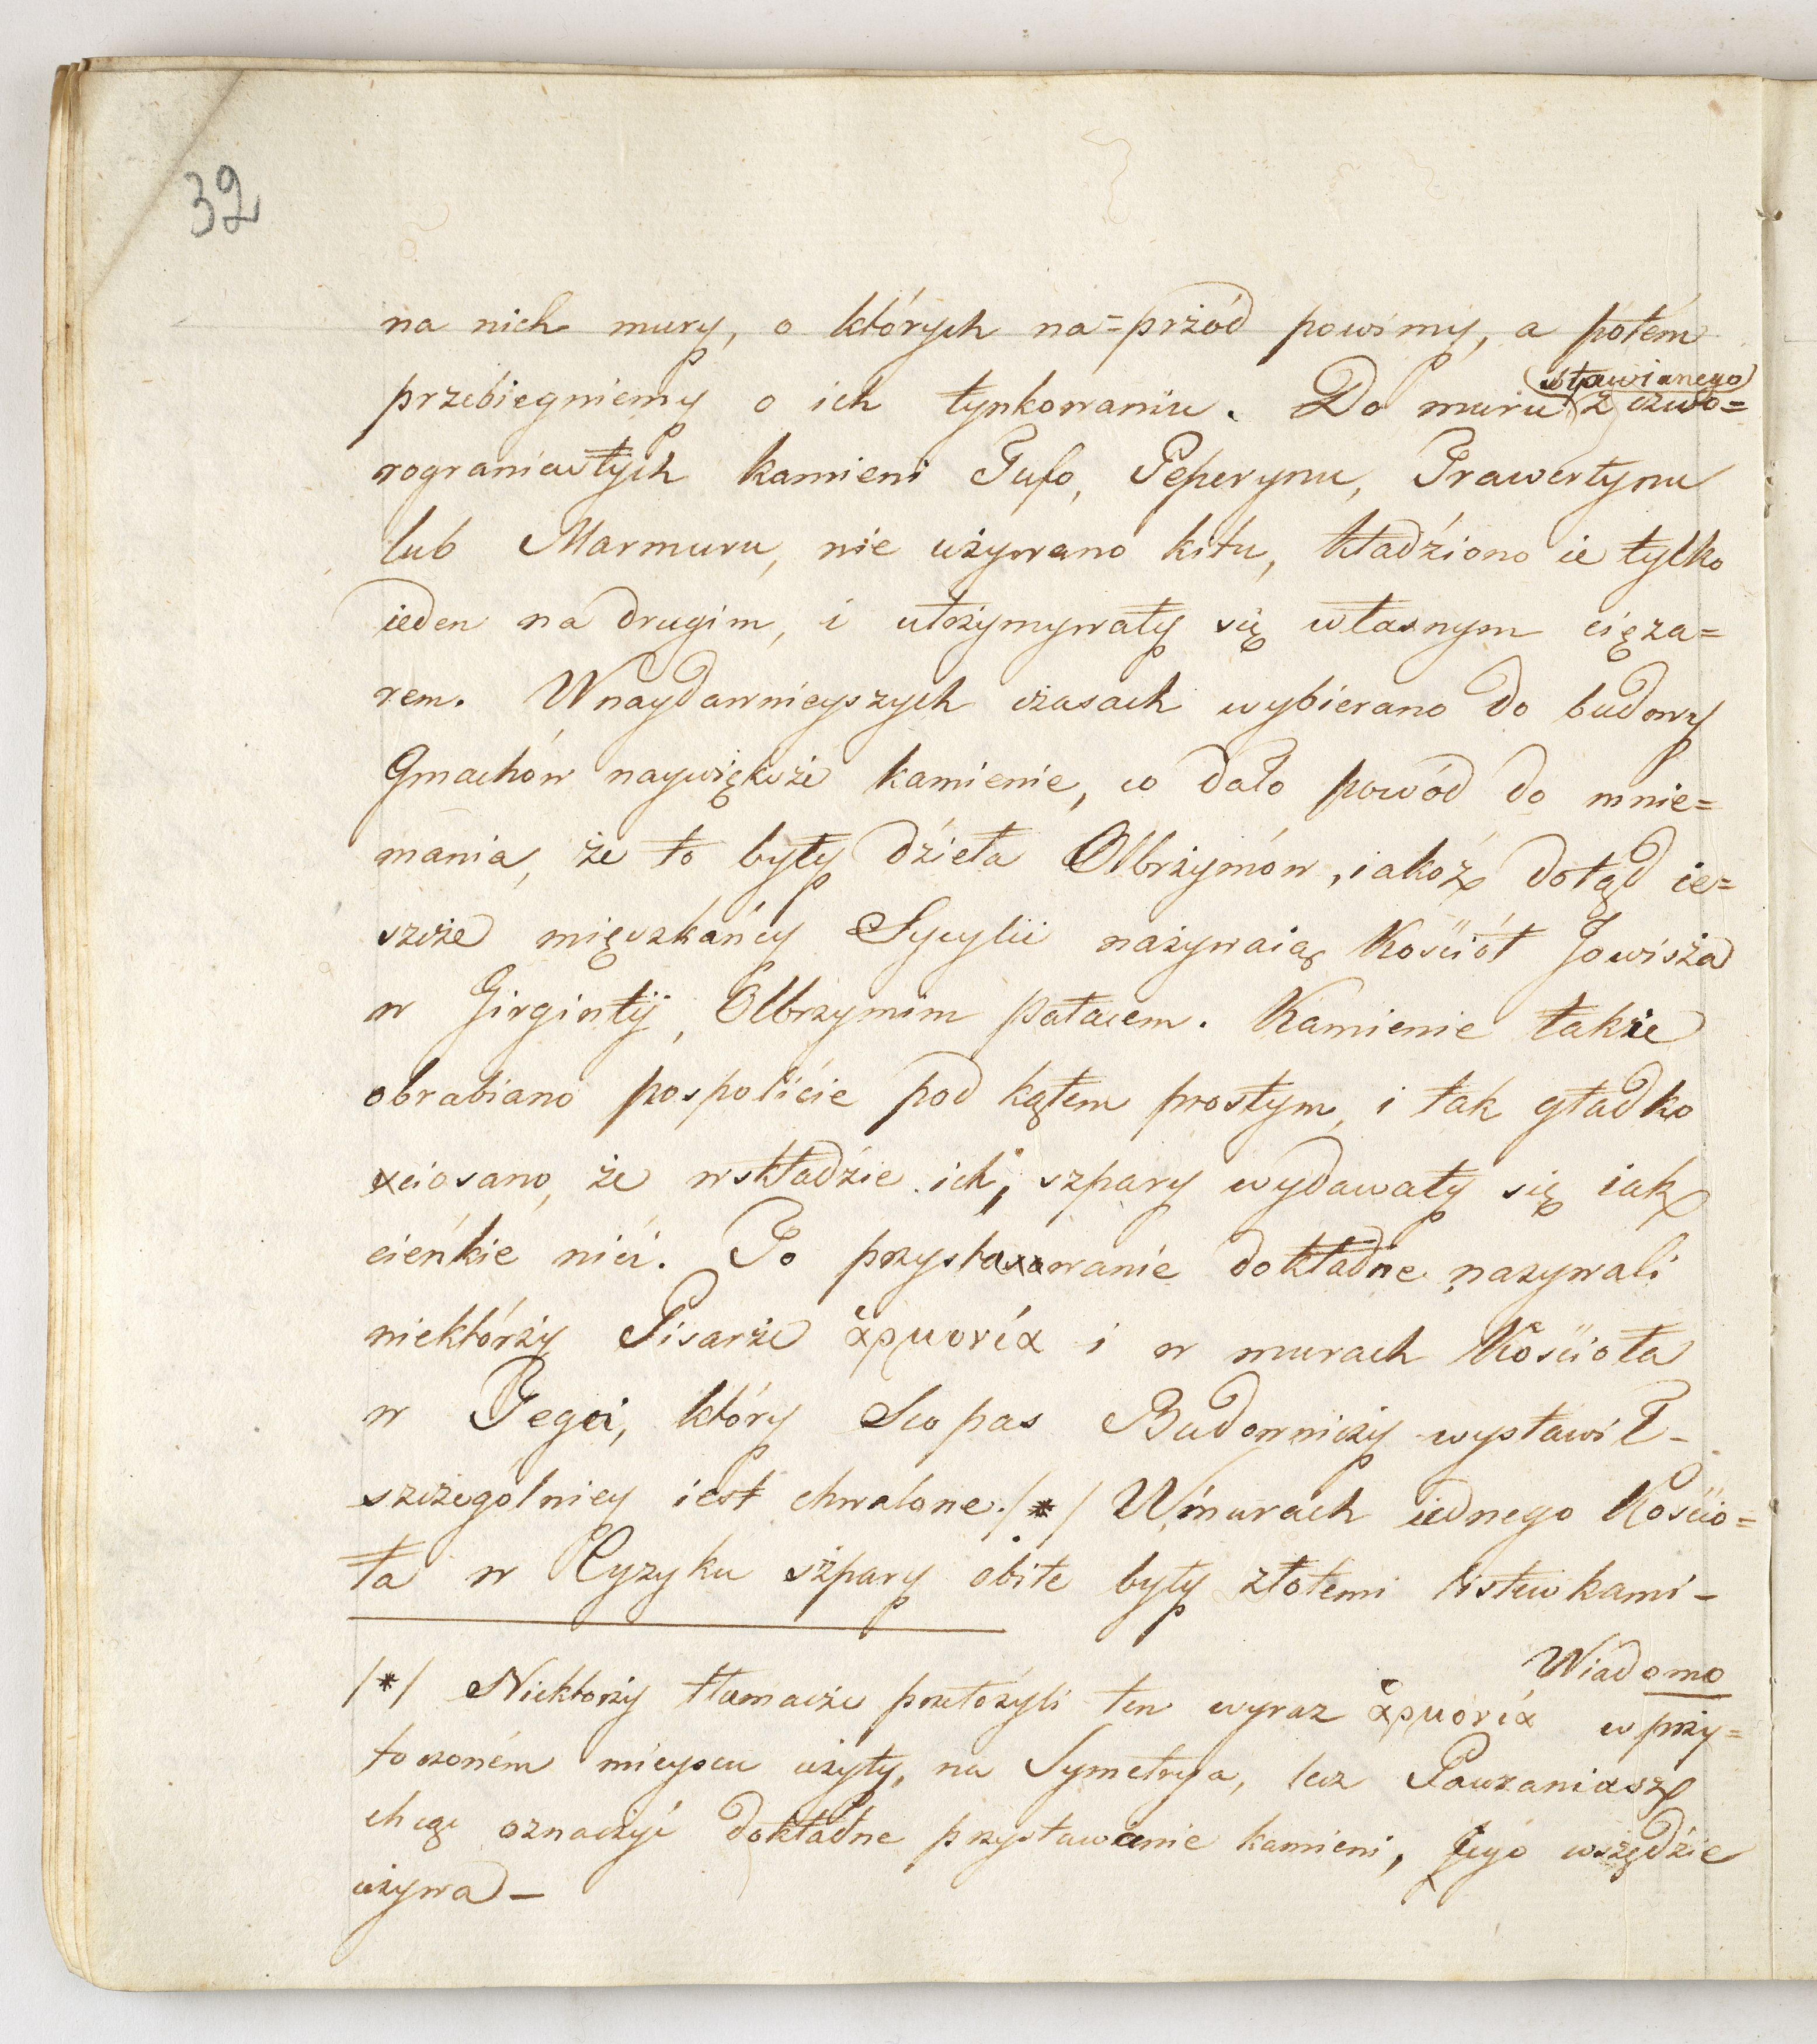 32
na nich mury, o których na=przód powimy, a potém
przebiegniemy o ich tynkowaniu. Do muru (stawianego) z czwo=
rograniastych kamieni Tufo, Peperynu, Trawertynu
lub Marmuru, nie używano kitu, kładziono ie tylko
ieden na drugim, i utrzymywały się własnym cięża=
rem. W naydawnieyszych czasach wybierano do budowy
Gmachów naywiększe kamienie, co dało powód do mnie=
mania, że to były dzieła Olbrzymów, iakoż dotąd ie=
szcze mięszkańcy Sycylii nazywaią Kościół Jowisza
w Girgintÿ, Olbrzymim pałacem. Kamienie także
obrabiano pospolicie pod kątem prostym, i tak gładko
ciosano, że w składzie ich, szpary wydawały się iak
cieńkie nici. To przystawanie dokładne nazywali
niektórzy Pisarze ἁρμονία i w murach Kościoła
w Tegei, który Scopas Budowniczy wystawił -
szczególniey iest chwalone. /*/ W murach iednego Kościo=
ła w Cyzyku szpary obite były złotemi listewkami -
Wiadomo
/*/ Niektorzy tłamacze przełożyli ten wyraz ἁρμονία w przy=
toczoném mieyscu użyty, na Symetrya, lecz Pauzaniasz
chcąc oznaczyć dokładne przystawanie kamieni, iego wszędzie
używa -